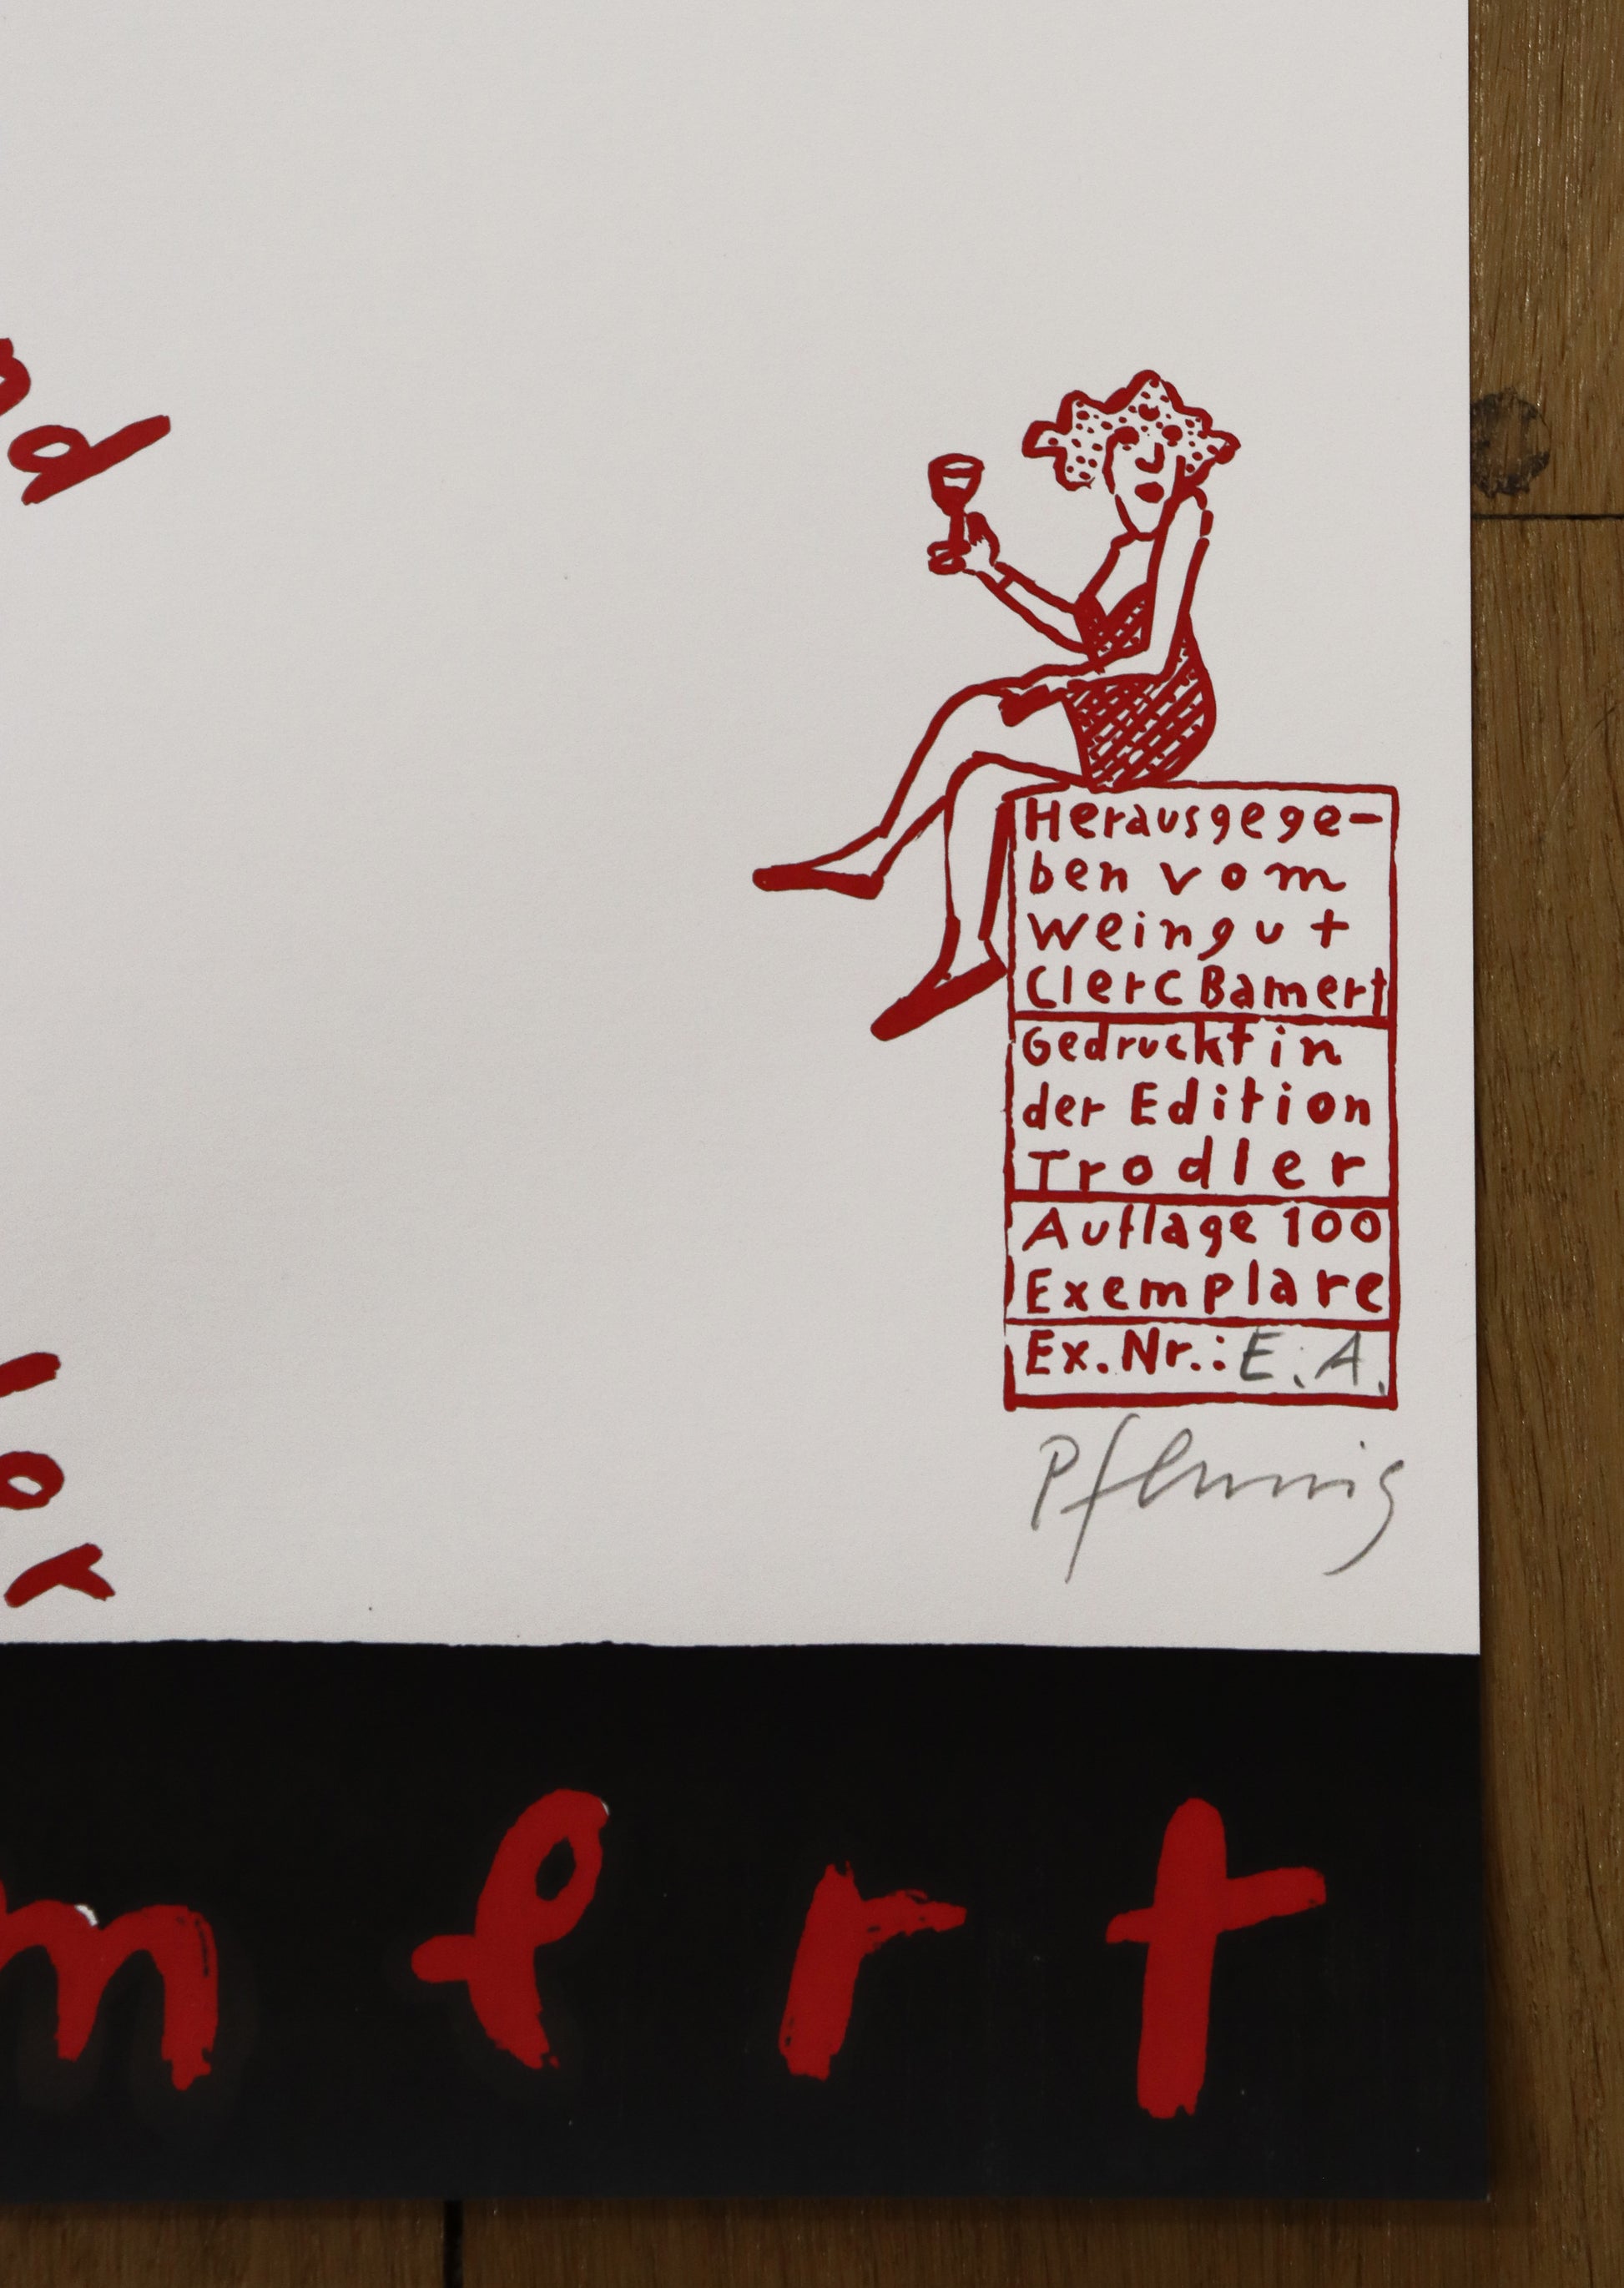 d
Herausgege-
ben vom
Weingut
Clerc Bamert
Gedruckt in
der Edition
Trodler
Auflage 100
Exemplare
Ex. Nr.: E.A.
Pfennig
l
o
r
mert